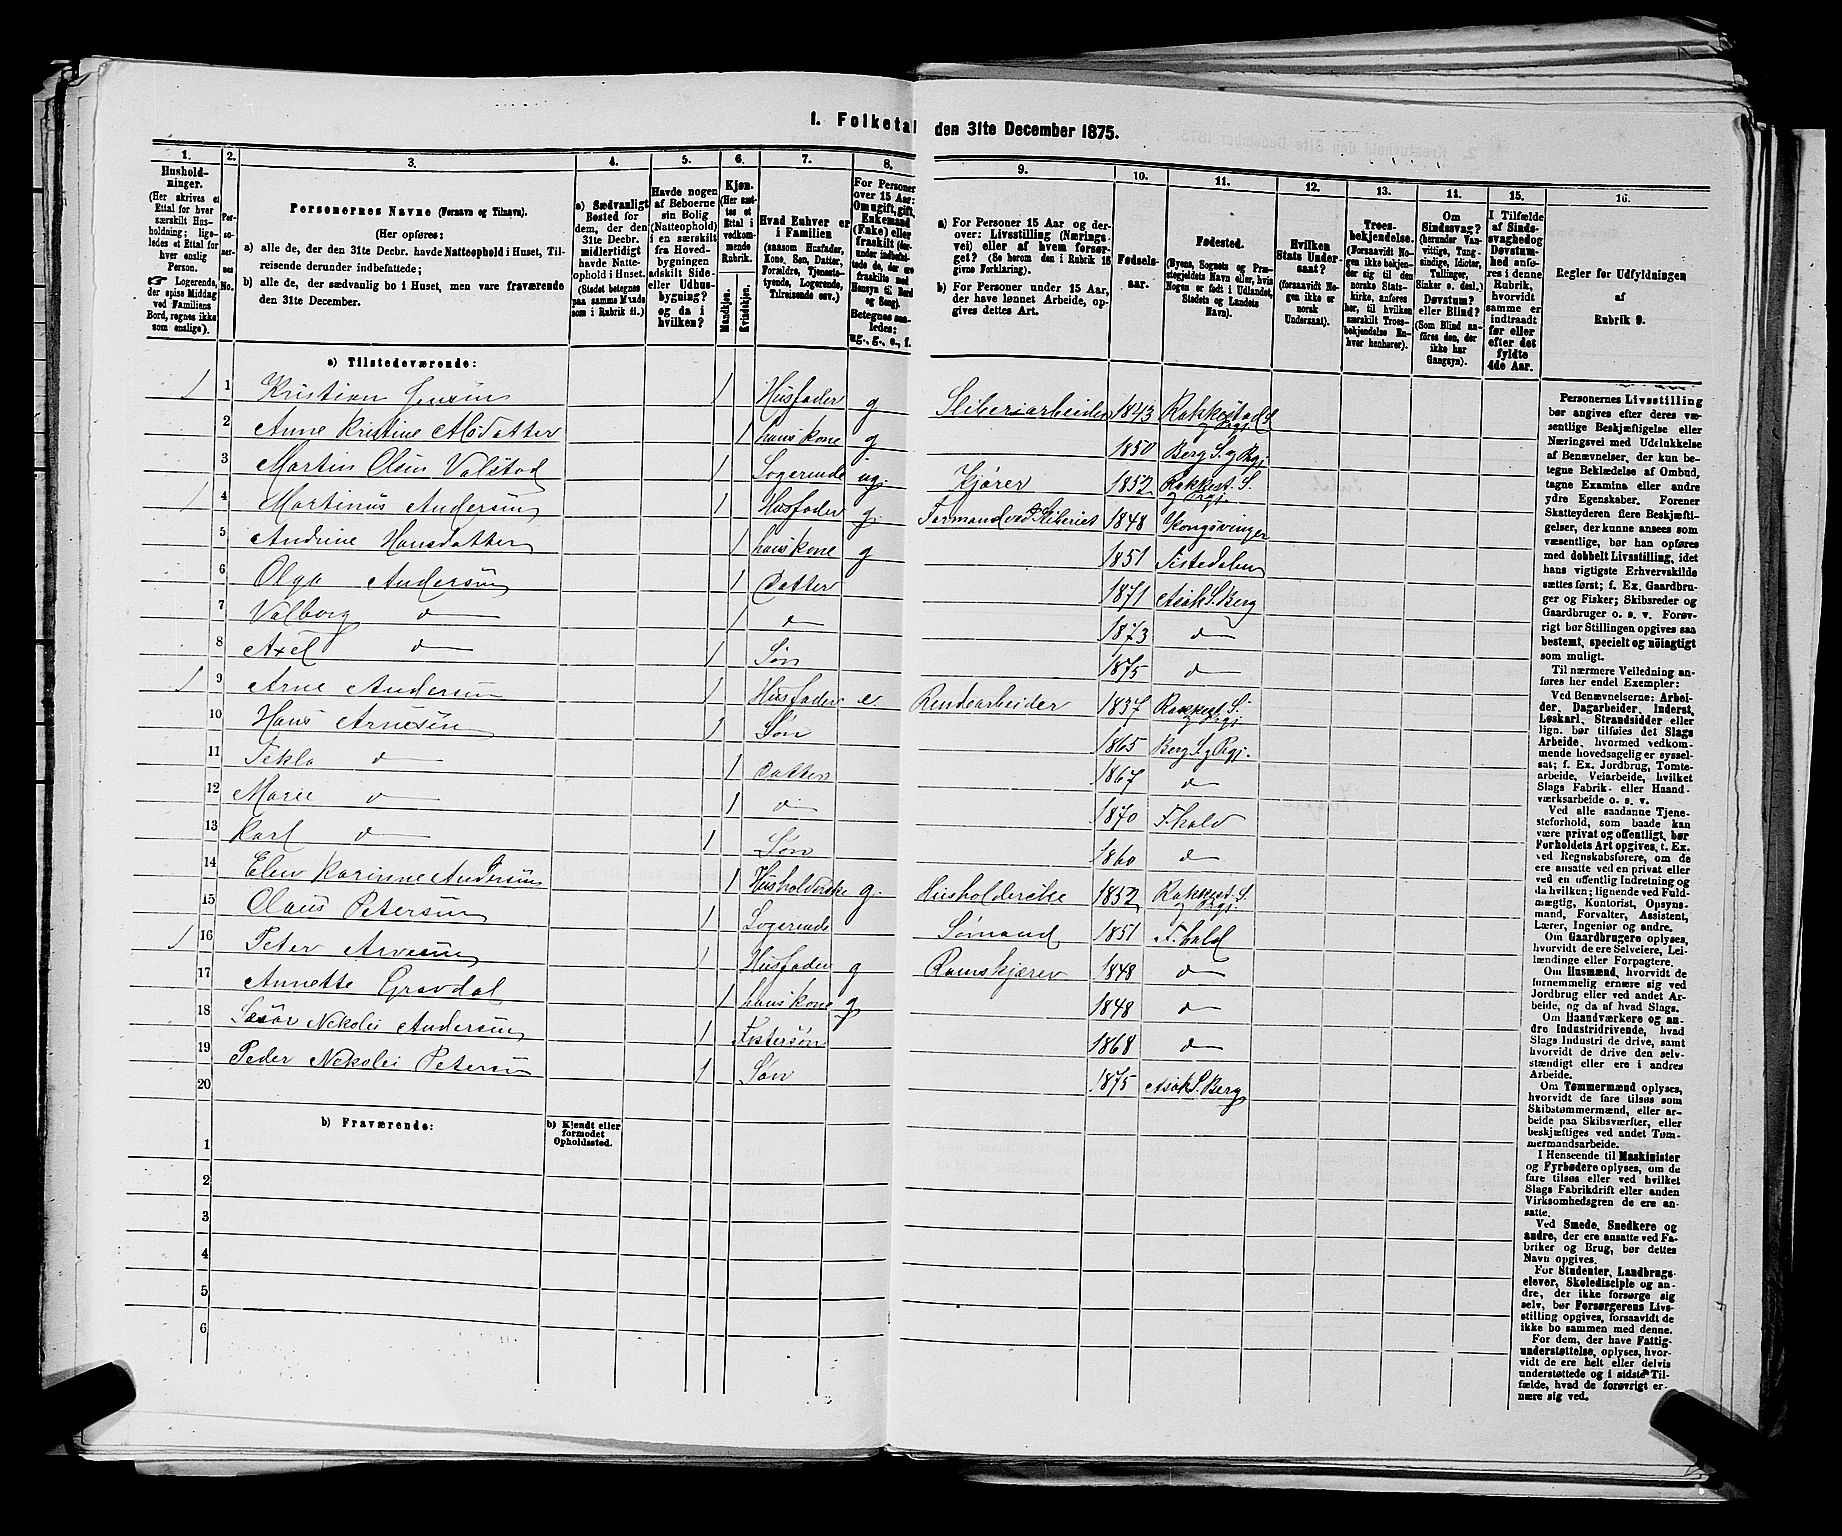 1. Folketal den 31te December 1875.
1. 2. 3. 4. 5. 6. 7. 8. 9. 10. 11. 12. 13. 14. 15. 16.
Husholdninger.
(Her skrives et Ettal for hver særskilt Husholdning; ligeledes et Ettal for hver enslig Person.
☞ Logerende, der spise Middag ved Familiens Bord, regnes ikke som enslige).
Personernes No.
Personernes Navne (Fornavn og Tilnavn).
(Her opføres:
a) alle de, der den 31te Decbr. havde Natteophold i Huset, Tilreisende derunder indbefattede;
b) alle de, der sædvanlig bo i Huset, men vare fraværende den 31te December.
a) Sædvanligt Bosted for dem, der den 31te Decbr. midlertidigt havde Natteophold i Huset.
(Stedet betegnes paa samme Maade som i Rubrik 11.)
Havde nogen af Beboerne sin Bolig (Natteophold) i en særskilt fra Hovedbygningen adskilt Side- eller Udhusbygning? og da i hvilken?
Kjøn.
(Her sættes et Ettal i vedkommende Rubrik.
Mandkjøn. Kvindekjøn.
Hvad Enhver er i Familien
(saasom Husfader, Kone, Søn, Datter, Forældre, Tjenestetyende, Logerende, Tilreisende osv.)
For Personer over 15 Aar: Om ugift, gift, Enkemand (Enke) eller fraskilt
Betegnes saaledes: ug., g., e., f.
a) For Personer 15 Aar og derover: Livsstilling (Næringsvei) eller af hvem forsørget? (Se herom den i Rubrik 16 givne Forklaring).
b) For Personer under 15 Aar, der have lønnet Arbeide, opgives dettes Art.
Fødselsaar.
Fødested.
(Byens, Sognets og Præstegjeldets Navn eller, hvis Nogen er født i Udlandet, Stedets og Landets Navn).
Hvilken Stats Undersaat?
(forsaavidt Nogen ikke er norsk Undersaat).
Troesbekjendelse.
(Forsaavidt Nogen ikke bekjender sig til den norske Statskirke, anføres her, til hvilken særskilt Troesbekjendelse Enhver henhører).
Om Sindssvag?
(herunder Vanvittige, Tungsindige, Idioter, Tullinger, Sinker o. desl.)
Døvstum? eller Blind?
(Som Blind anføres den, der ikke har Gangsyn).
I Tilfælde af Sindssvaghed og Døvstumhed anføres i denne Rubrik, hvorvidt samme er indtraadt før eller efter det fyldte 4de Aar.
Regler for Udfyldningen af Rubrik 9.
a) Tilstedeværende:
1 1 Kristian Jensen 1 Husfader g Sliberiarbeider 1843 Rakkestad S. og Prgj.
2 Anne Kristine Mosdatter 1 hans kone g 1850 Berg S. og Prgj
3 Martin Olsen Valstad 1 Logerende ug. Kjører 1852 Rakkest. S. og Prgj
1 4 Martinus Andersen 1 Husfader g Formand ved Sliberiet 1848 Kongsvinger
5 Andrine Hansdatter 1 hans kone g 1851 Tistedalen
6 Olga Andersen 1 Datter 1871 Asak S. Berg
7 Valborg do 1 do 1873 do
8 Axel do 1 Søn 1875 do
1 9 Arne Andersen 1 Husfader e Rendearbeider 1837 Rakkest S. og Prgj
10 Hans Arnesen 1 Søn 1865 Berg S. og Prgj.
11 Tekla do 1 Datter 1867 do
12 Marie do 1 do 1870 F.hald
13 Karl do 1 Søn 1860 do
14 Elen Karinne Andersen 1 Husholderske g. Husholderske 1852 Rakkest. S. og Prgj.
15 Claus Petersen 1 Logerende Sømand 1851 F.hald
1 16 Peter Arvesen 1 Husfader g Ramskjærer 1848 do
17 Annette Gravdal 1 hans kone g 1848 do
18 Nekolei Andersen 1 Fostersøn 1868 do
19 Peder Nekolei Petersen 1 Søn 1875 Asak S. Berg
20
b) Fraværende: b) Kjendt eller formodet Opholdssted.
1
2
3
4
5
6
Personernes Livsstilling
bør angives efter deres væ-
sentlige Beskjæftigelse eller
Næringsvei med Udelukkelse
af Benævnelser, der kun be-
tegne Beklædelse af Ombud,
tagne Examina eller andre
ydre Egenskaber. Forener
Skatteyderen flere Beskjæfti-
gelser, der kunne ansees som
væsentlige, bør han opføres
med dobbelt Livsstilling, idet
hans vigtigste Erhvervskilde
sættes først; f. Ex. Gaardbru-
ger og Fisker; Skibsreder og
Gaardbruger o. s. v. Forøv-
rigt bør Stillingen opgives saa
bestemt, specielt og nöiagtigt
som muligt.
Til nærmere Veiledning an-
føres her endel Exempler:
Ved Benævnelserne: Arbei-
der, Dagarbeider, Inderst,
Løskarl, Strandsidder eller
lign. bør tilføies det Slags
Arbeide, hvormed vedkom-
mende hovedsagelig er syssel-
sat; f. Ex. Jordbrug, Tomte-
arbeide, Veiarbeide, hvilket
Slags Fabrik- eller Haand-
værksarbeide o. s. v.
Ved alle saadanne Tjene-
steforhold, som baade kan
være privat og offentligt, bør
Forholdets Art opgives, t. Ex.
ved Regnskabsførere, om de
ere ansatte ved en privat eller
ved en offentlig Indretning og
da hvilken; lignende ved Fuld-
mægtig, Kontorist, Opsyns-
mand, Forvalter, Assistent,
Lærer, Ingeniør og andre.
Om Gaardbrugere oplyses,
hvorvidt de ere Selveiere, Lei-
lændinge eller Forpagtere.
Om Husmænd, hvorvidt de
fornemmelig ernære sig ved
Jordbrug eller ved andet Ar-
beide, og da af hvad Slags.
Om Haandværkere og an-
dre Industridrivende, hvad
Slags Industri de drive, samt
hvorvidt de drive den selv-
stændigt eller ere i andres
Arbeide.
Om Tømmermænd oplyses,
hvorvidt de fare tilsøs som
Skibstømmermænd, eller ar-
beide paa Skibsværfter, eller
beskjæftiges ved andet Tøm-
mermandsarbeide.
I Henseende til Maskinister
og Fyrbødere oplyses, om de
fare tilsøs eller ved hvilket
Slags Fabrikdrift eller anden
Virksomhedsgren de ere an-
satte.
Ved Smede, Snedkere og
andre, der ere ansatte ved Fa-
briker og Brug, bør dettes
Navn opgives.
For Studenter, Landbrugs-
elever, Skoledisciple og an-
dre, der ikke forsørge sig
selv, bør Forsørgerens Livs-
stilling opgives, forsaavidt de
ikke bo sammen med denne.
For dem, der have Fattig-
understøttelse, oplyses, hvor-
vidt de ere helt eller delvis
understøttede og i sidste Til-
fælde, hvad de forøvrigt er-
nære sig ved.